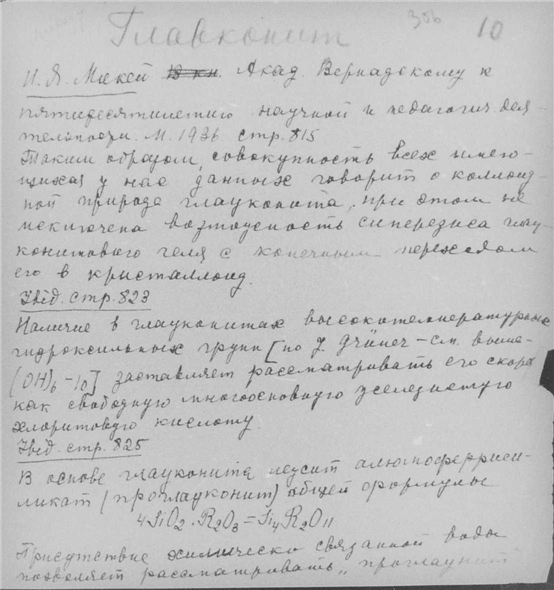 Главконит 10
И. Я. Микей Акад. Вернадскому к
пятидесятилетию научной и педагогич. дея-
тельности. М. 1936 стр. 815
Таким образом, совокупность всех имею-
щихся у нас данных говорит о коллоид-
ной природе глауконита, при этом не
исключена возможность синерезиса глау-
конитового геля с конечным переходом
его в кристаллоид.
Ibid. стр. 823
Наличие в глауконитах высокотемпературных
гидроксильных групп [по J. Грюнер – см. выше –
(OH)6-10] заставляет рассматривать его скорее
как свободную многоосновную железистую
хлоритовую кислоту.
Ibid. стр. 825
В основе глауконита лежит алюмоферриси-
ликат (проглауконит) общей формулы
4SiO2 · R2O3 = Si4R2O11
Присутствие химически связанной воды
позволяет рассматривать „проглауконит